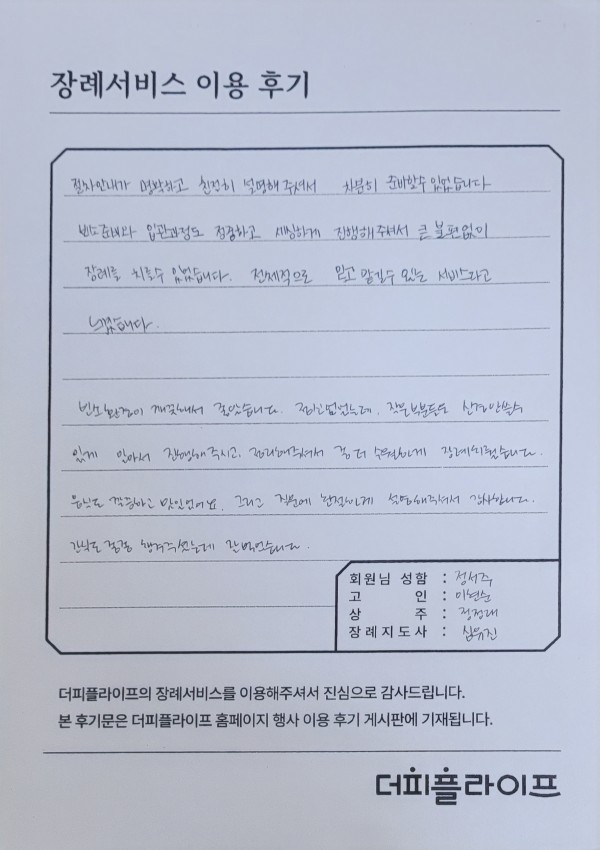 장례서비스 이용 후기
절차안내가 명확하고 친절히 설명해 주셔서 차분히 준비할수 있었습니다
빈소준비와 입관과정도 정중하고 세심하게 진행해주셔서 큰 불편없이
장례를 치를수 있었습니다. 전체적으로 믿고 맡길수 있는 서비스라고
느꼈습니다.
빈소환경이 깨끗해서 좋았습니다.
있게 알아서 진행해주시고, 정리해주셔서 좀 더 수월하게 장례치렀습니다.
음식도 깔끔하고 맛있었어요. 그리고 질문에 친절하게 설명해주셔서 감사합니다.
간식도 챙겨주셨는데 잘 먹었습니다.
회원님 성함 : 정서주
고 인 : 이연순
상 주 : 정정대
장례지도사 : 심유진
더피플라이프의 장례서비스를 이용해주셔서 진심으로 감사드립니다.
본 후기문은 더피플라이프 홈페이지 행사 이용 후기 게시판에 기재됩니다.
더피플라이프